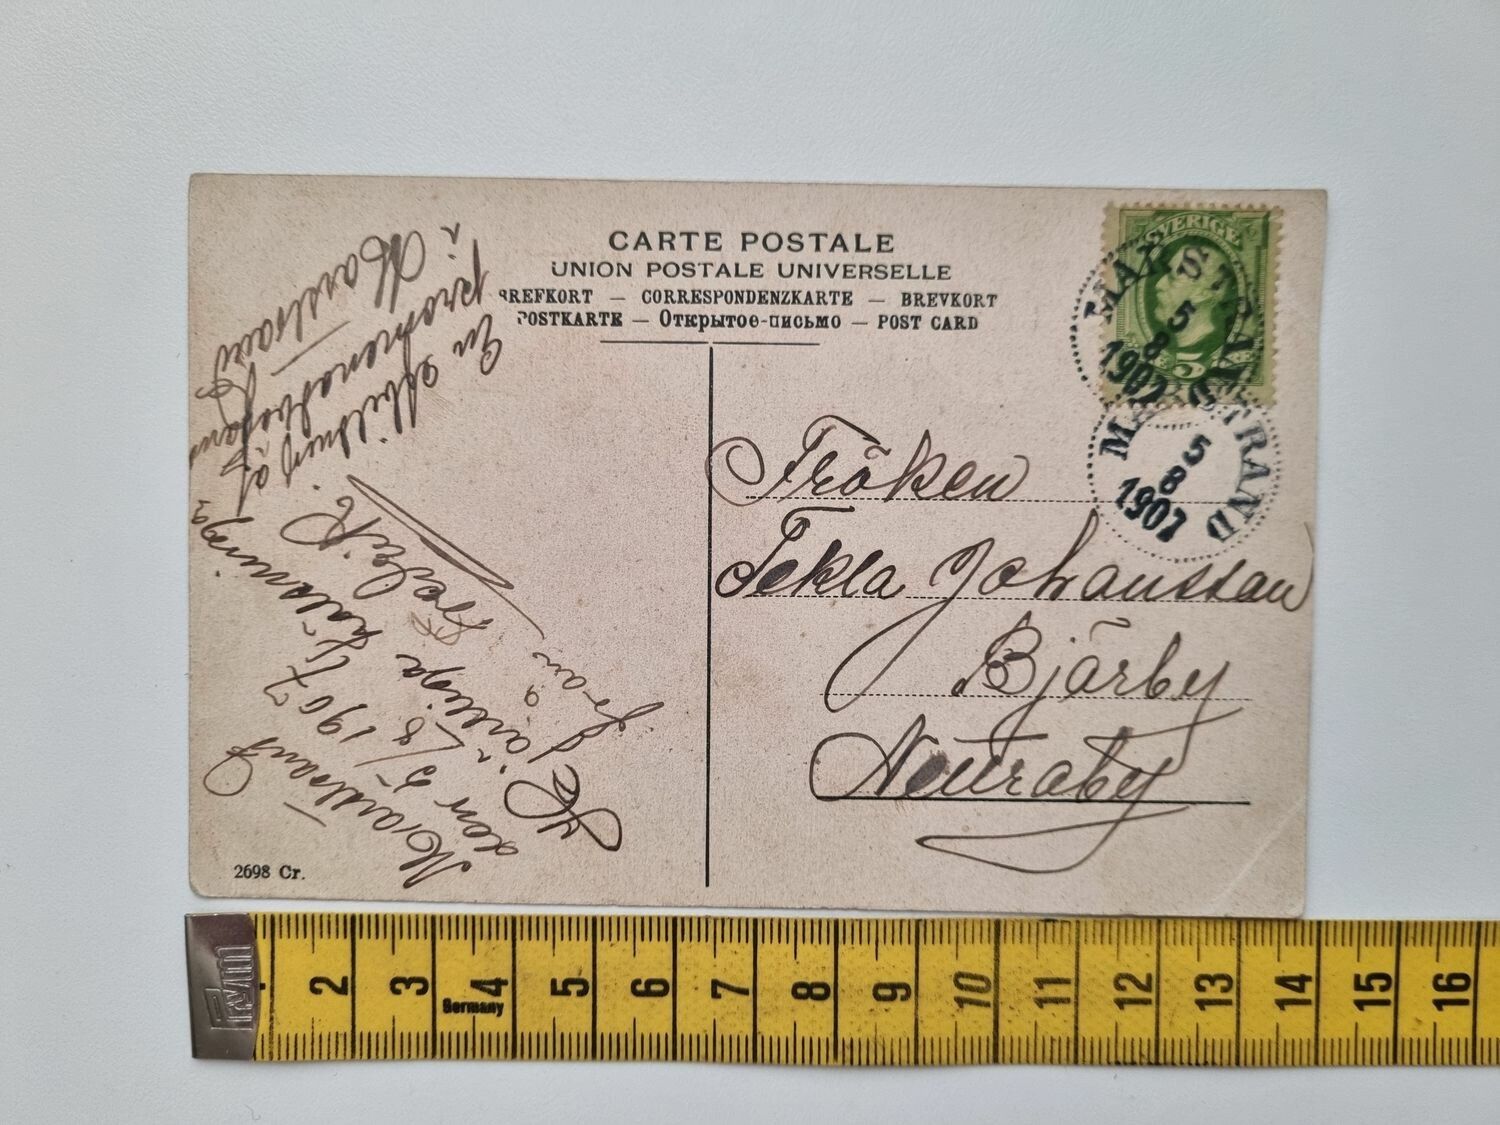 CARTE POSTALE
UNION POSTALE UNIVERSELLE
BREFKORT — CORRESPONDENZKARTE — BREVKORT
POSTKARTE — Открытое-письмо — POST CARD
SVERIGE
5
MARSTRAND
5
8
1907
MARSTRAND
5
8
1907
Fröken
Tekla Johansson
Bjärby
Netraby
Marstrand
den 5/8 1907
Hjärtliga hälsningar
från
En afbildning af
promenadvägen
i Marstrand
2698 Cr.
2 3 4 5 6 7 8 9 10 11 12 13 14 15 16
Germany